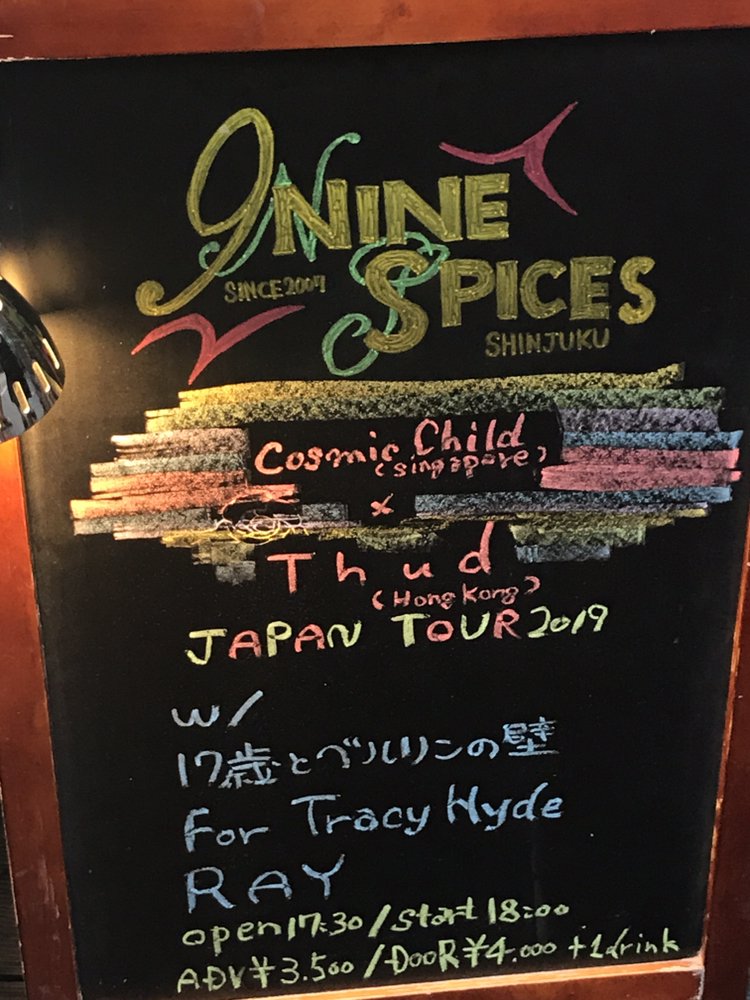 9 NINE
SPICES
SINCE 2007
SHINJUKU
Cosmic Child
(Singapore)
×
Thud
(Hong Kong)
JAPAN TOUR 2019
w/
17歳とベルリンの壁
For Tracy Hyde
RAY
open 17:30 / start 18:00
ADV ¥3.500 / DooR ¥4.000 +1drink